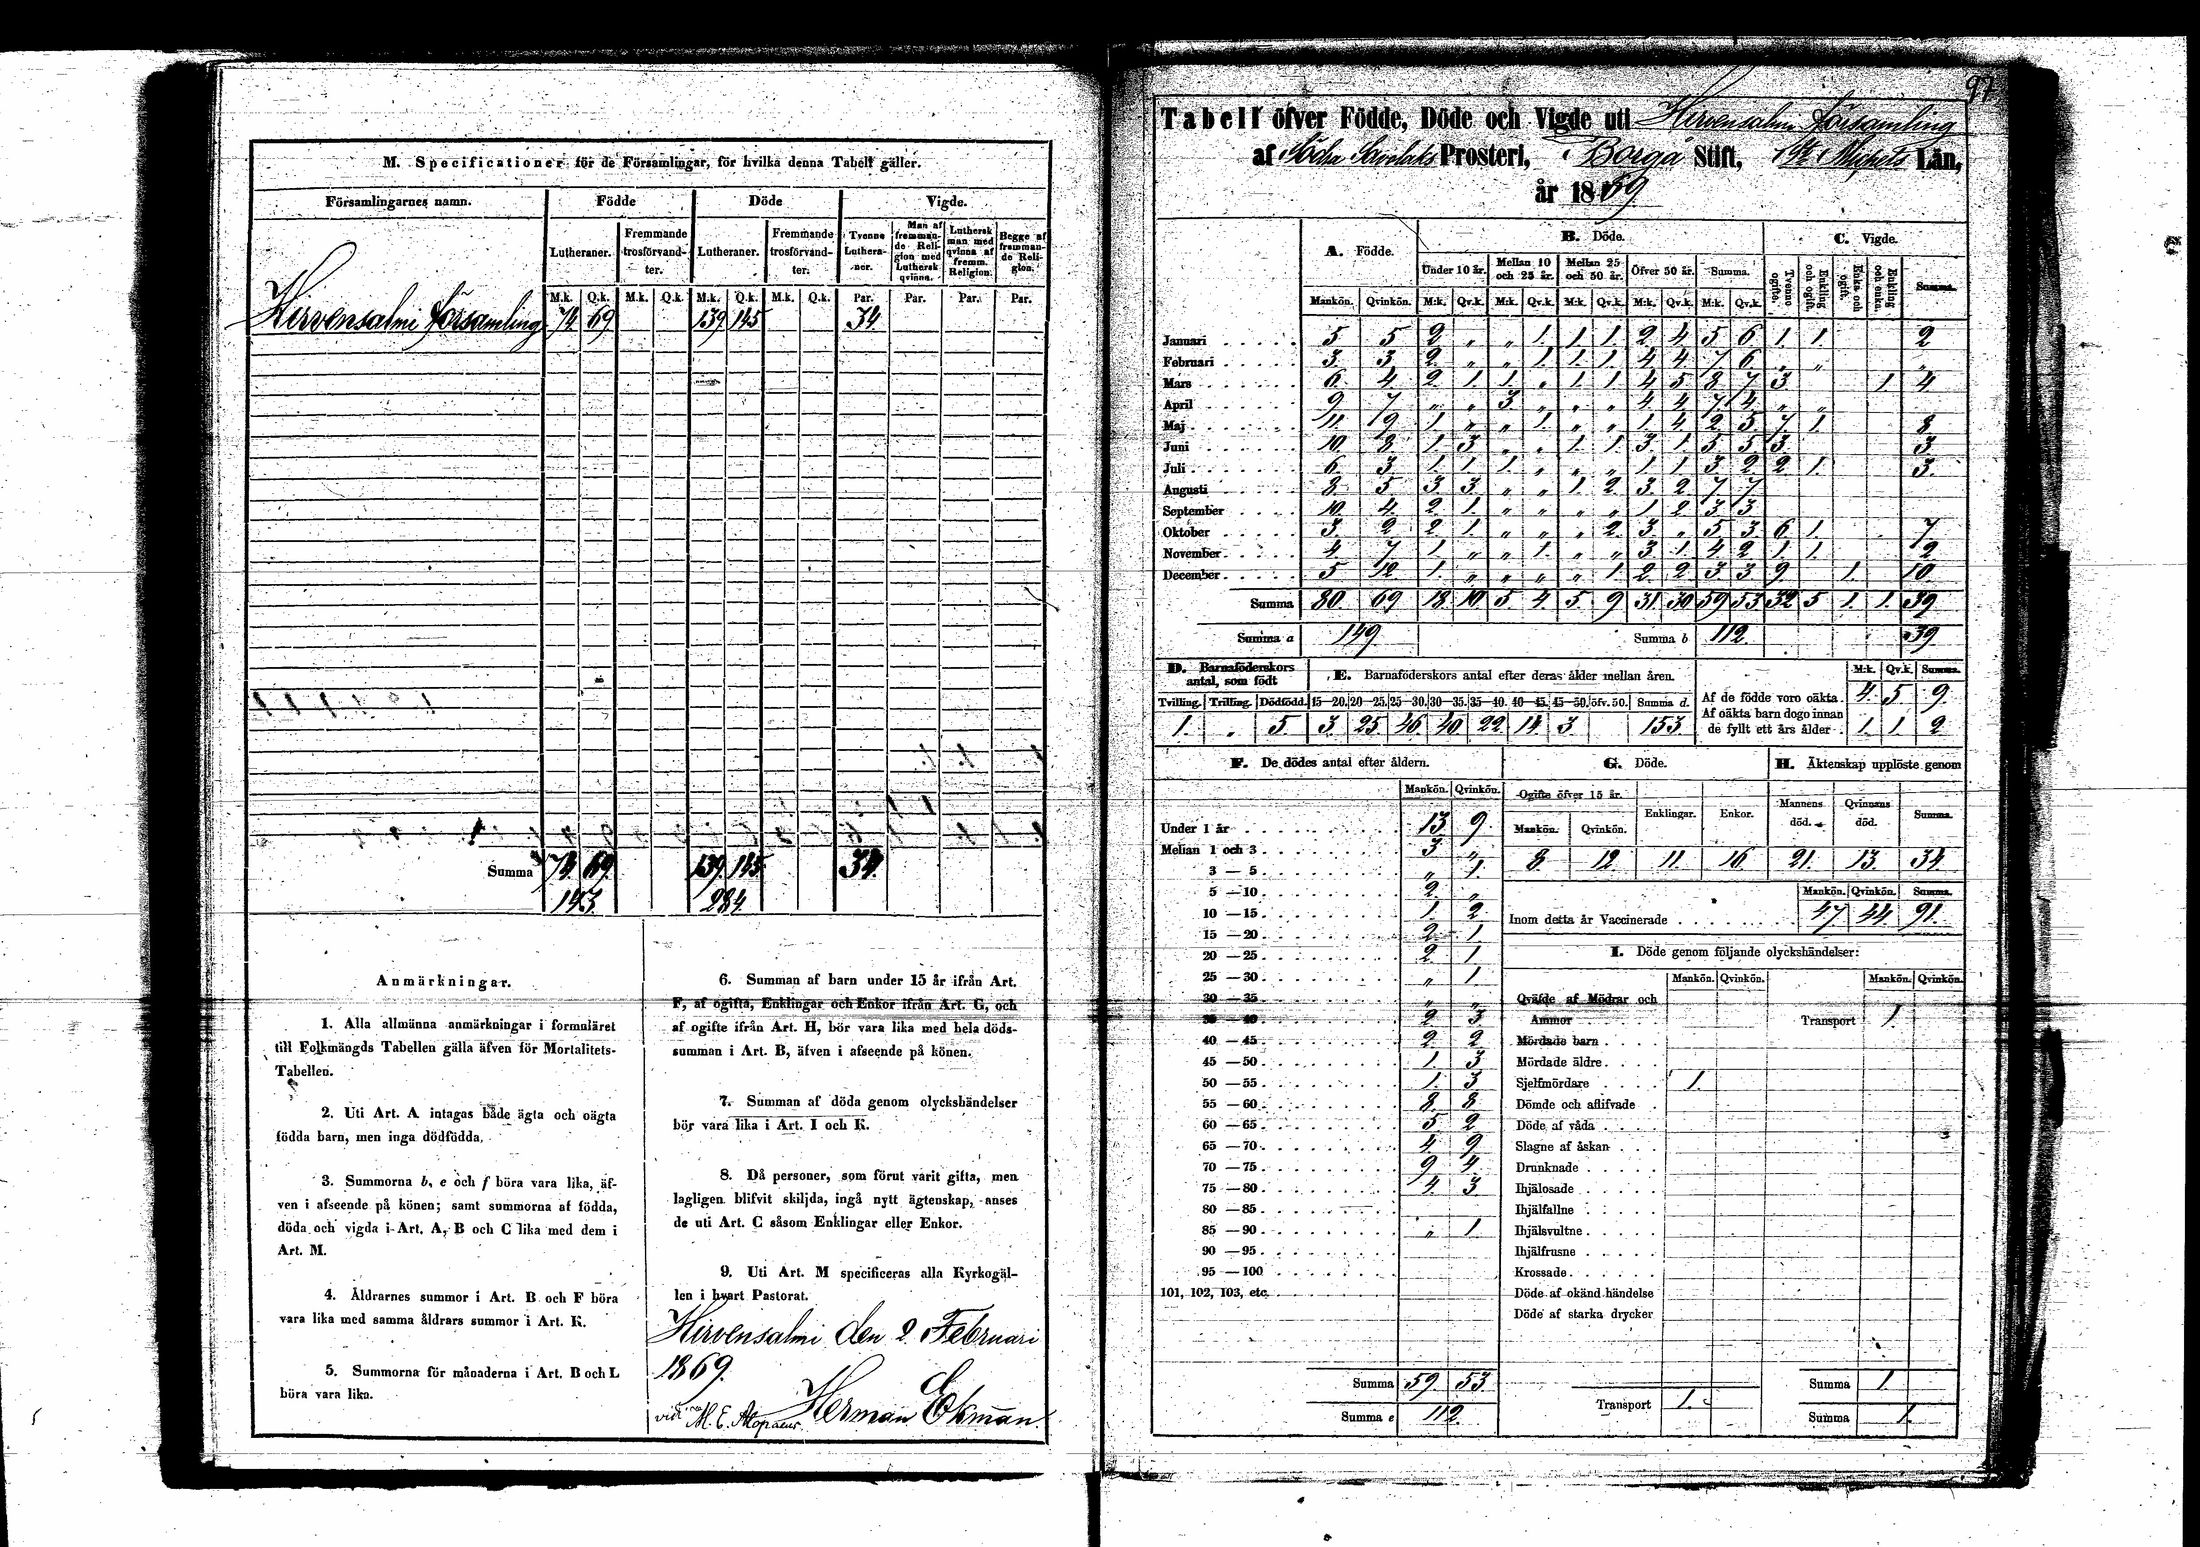 M. Specificationer för de Församlingar, för hvilka denna Tabell gäller.
Församlingarnes namn. Födde Döde Vigde.
Lutheraner. Fremmande trosförvandter. Lutheraner. Fremmande trosförvandter. Tvenne Lutheraner. Man af fremmande Religion med Luthersk qvinna. Luthersk man med qvinna af fremm. Religion. Begge af fremmande Religion.
M.k. Q.k. M.k. Q.k. M.k. Q.k. M.k. Q.k. Par. Par. Par. Par.
Hirvensalmi församling 74 69 139 145 34
Summa 74 69 139 145 34
143 284
Anmärkningar.
1. Alla allmänna anmärkningar i formuläret
till Folkmängds Tabellen gälla äfven för Mortalitets-
Tabellen.
2. Uti Art. A intagas både ägta och oägta
födda barn, men inga dödfödda.
3. Summorna b, e och f böra vara lika, äf-
ven i afseende på könen; samt summorna af födda,
döda och vigda i Art. A, B och C lika med dem i
Art. M.
4. Åldrarnes summor i Art. B och F böra
vara lika med samma åldrars summor i Art. K.
5. Summorna för månaderna i Art. B och L
böra vara lika.
6. Summan af barn under 15 år ifrån Art.
F, af ogifta, Enklingar och Enkor ifrån Art. G, och
af ogifte ifrån Art. H, bör vara lika med hela döds-
summan i Art. B, äfven i afseende på könen.
7. Summan af döda genom olyckshändelser
bör vara lika i Art. I och K.
8. Då personer, som förut varit gifta, men
lagligen blifvit skiljda, ingå nytt ägtenskap, anses
de uti Art. C såsom Enklingar eller Enkor.
9. Uti Art. M specificeras alla Kyrkogäl-
len i hvart Pastorat.
Hirvensalmi den 2 Februari
1869.
Herman Ekman
vidi M. E. Alopaeus.
97
Tabell öfver Födde, Döde och Vigde uti Hirvensalmi församling
af Södra Savolaks Prosteri, Borgå Stift, St Michels Län,
år 1869
A. Födde. B. Döde. C. Vigde.
Under 10 år. Mellan 10 och 25 år. Mellan 25 och 50 år. Öfver 50 år. Summa. Tvenne ogifte. Enkling och ogift. Enka och ogift. Enkling och enka. Summa.
Mankön. Qvinkön. M:k. Qv.k. M:k. Qv.k. M:k. Qv.k. M:k. Qv.k. M:k. Qv.k.
Januari 5 5 2 „ „ 1 1 1 2 4 5 6 1 1 2
Februari 3 3 2 „ „ 1 1 1 4 4 7 6 „ „ „
Mars 6 4 2 1 1 „ 1 1 4 5 8 7 3 1 4
April 9 7 „ „ 3 „ „ „ 4 4 7 4 „ „
Maj 11 9 1 „ „ 1 „ „ 1 4 2 5 7 1 8
Juni 10 8 1 3 „ „ 1 1 3 1 5 5 3 3
Juli 6 3 1 1 1 „ „ „ 1 1 3 2 2 1 3
Augusti 8 5 3 3 „ „ 1 2 3 2 7 7
September 10 4 2 1 „ „ „ „ 1 2 3 3
Oktober 3 2 2 1 „ „ „ 2 3 „ 5 3 6 1 7
November 4 7 1 „ „ 1 „ „ 3 1 4 2 1 1 2
December 5 12 1 „ „ „ „ 1 2 2 3 3 9 1 10
Summa 80 69 18 10 5 4 5 9 31 30 59 53 32 5 1 1 39
Summa a 149 Summa b 112 39
D. Barnaföderskors antal, som födt
Tvilling. Trilling. Dödfödd.
1 „ 5
E. Barnaföderskors antal efter deras ålder mellan åren.
15—20. 20—25. 25—30. 30—35. 35—40. 40—45. 45—50. öfv. 50. Summa d.
3 25 46 40 22 14 3 153
M:k. Qv.k. Summa.
Af de födde voro oäkta 4 5 9
Af oäkta barn dogo innan
de fyllt ett års ålder 1 1 2
F. De dödes antal efter åldern.
Mankön. Qvinkön.
Under 1 år 13 9
Mellan 1 och 3 3 „
3 — 5 „ 1
5 — 10 2 „
10 — 15 1 2
15 — 20 2 1
20 — 25 2 1
25 — 30 „ 1
30 — 35 „ „
35 — 40 2 3
40 — 45 2 2
45 — 50 1 3
50 — 55 1 3
55 — 60 8 8
60 — 65 5 2
65 — 70 4 9
70 — 75 9 4
75 — 80 4 3
80 — 85
85 — 90 „ 1
90 — 95
95 — 100
101, 102, 103, etc.
Summa 59 53
Summa e 112
G. Döde.
Ogifte öfver 15 år. Enklingar. Enkor.
Mankön. Qvinkön.
8 12 11 16
H. Äktenskap upplöste genom
Mannens död. Qvinnans död. Summa.
21 13 34
Mankön. Qvinkön. Summa.
Inom detta år Vaccinerade 47 44 91
I. Döde genom följande olyckshändelser:
Mankön. Qvinkön. Mankön. Qvinkön.
Qväfde af Mödrar och
Ammor
Mördade barn
Mördade äldre
Sjelfmördare 1
Dömde och aflifvade
Döde af våda
Slagne af åskan
Drunknade
Ihjälosade
Ihjälfallne
Ihjälsvultne
Ihjälfrusne
Krossade
Döde af okänd händelse
Döde af starka drycker
Transport 1
Transport 1
Summa 1
Summa 1